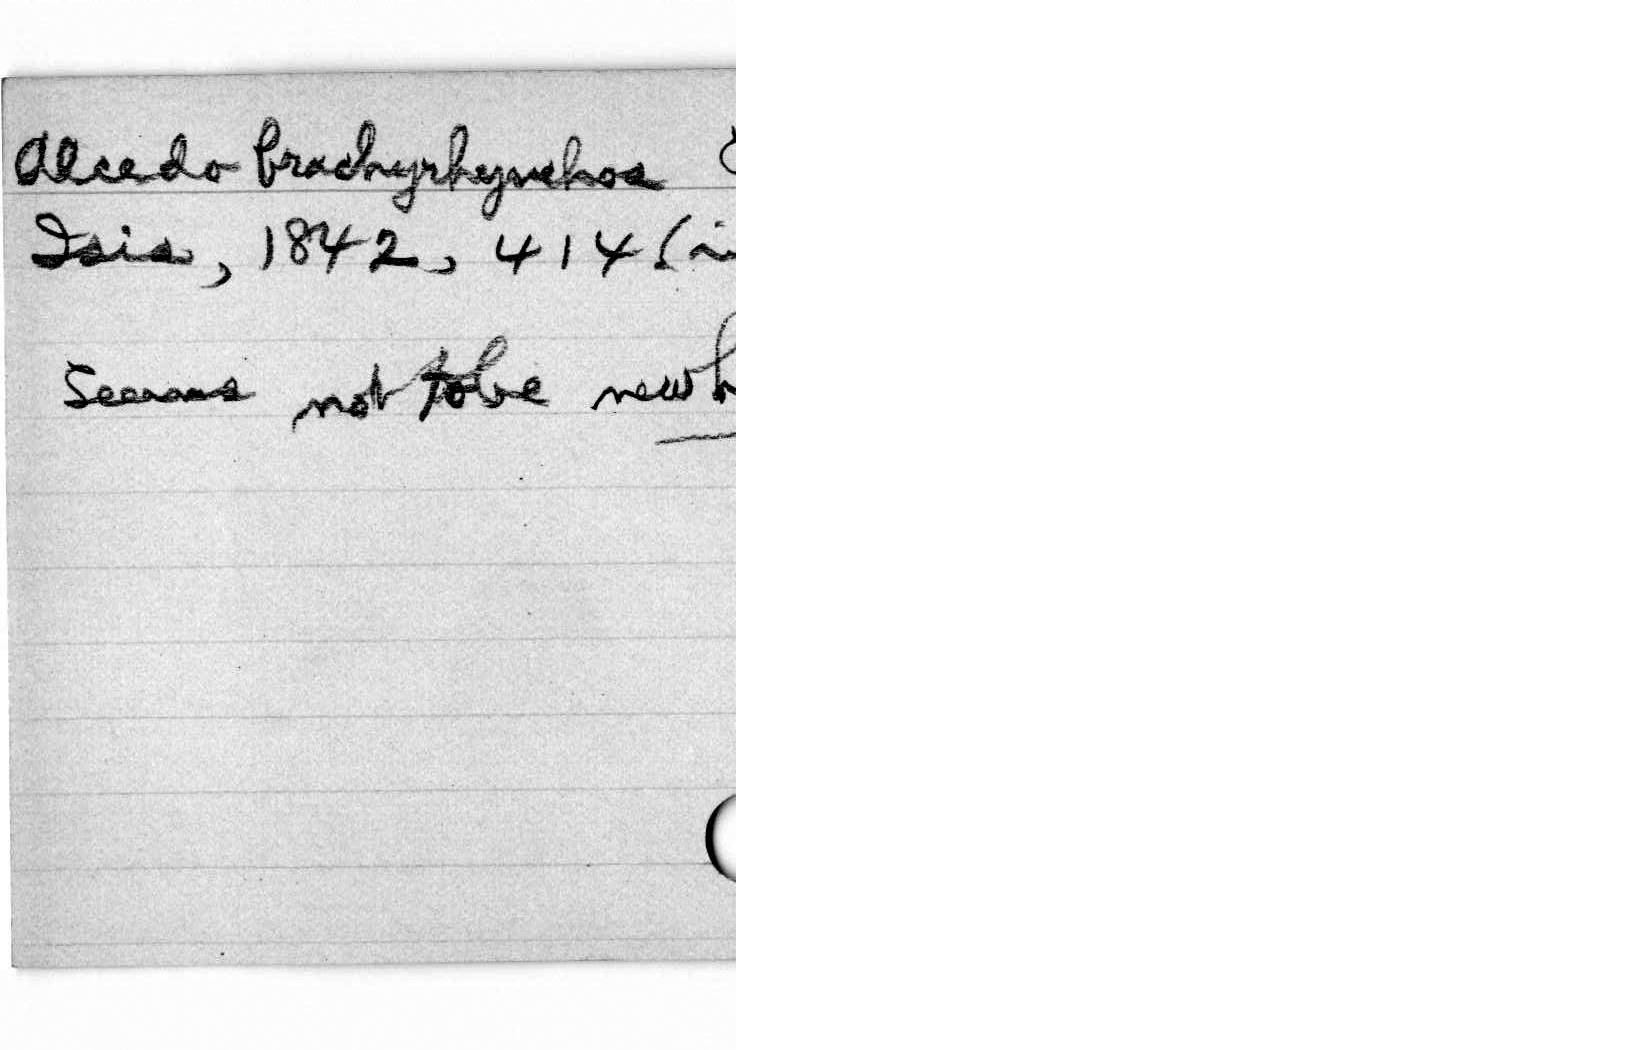 Alcedo brachyrhynchos
Isis, 1842, 414 (i
Seems not to be new h